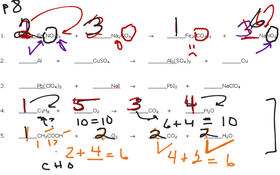 p8
2 Fe(NO₃)₃ 3 Na₂CO₃ 1 Fe₂(CO₃)₃ 6 NaNO₃
2. Al CuSO₄ Al₂(SO₄)₃ Cu
3. Pb(ClO₄)₂ NaI PbI₂ NaClO₄
1 C₃H₈ 5 O₂ 3 CO₂ 4 H₂O
10 = 10 6 + 4 = 10
1 CH₃COOH 2 O₂ 2 CO₂ 2 H₂O
2 + 4 = 6 4 + 2 = 6
C H O